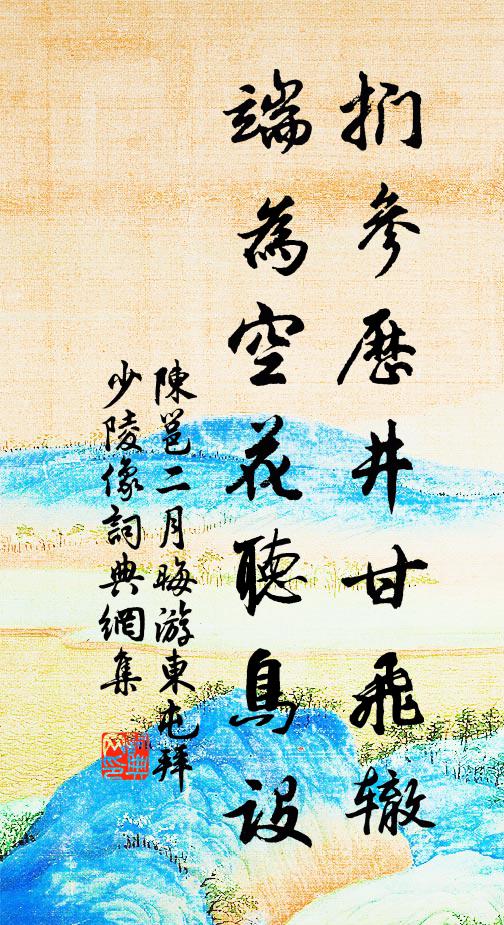 捫參歷井甘飛辙
端為空花聽鳥設
陳邕二月晦游東屯拜
少陵像詞典網集